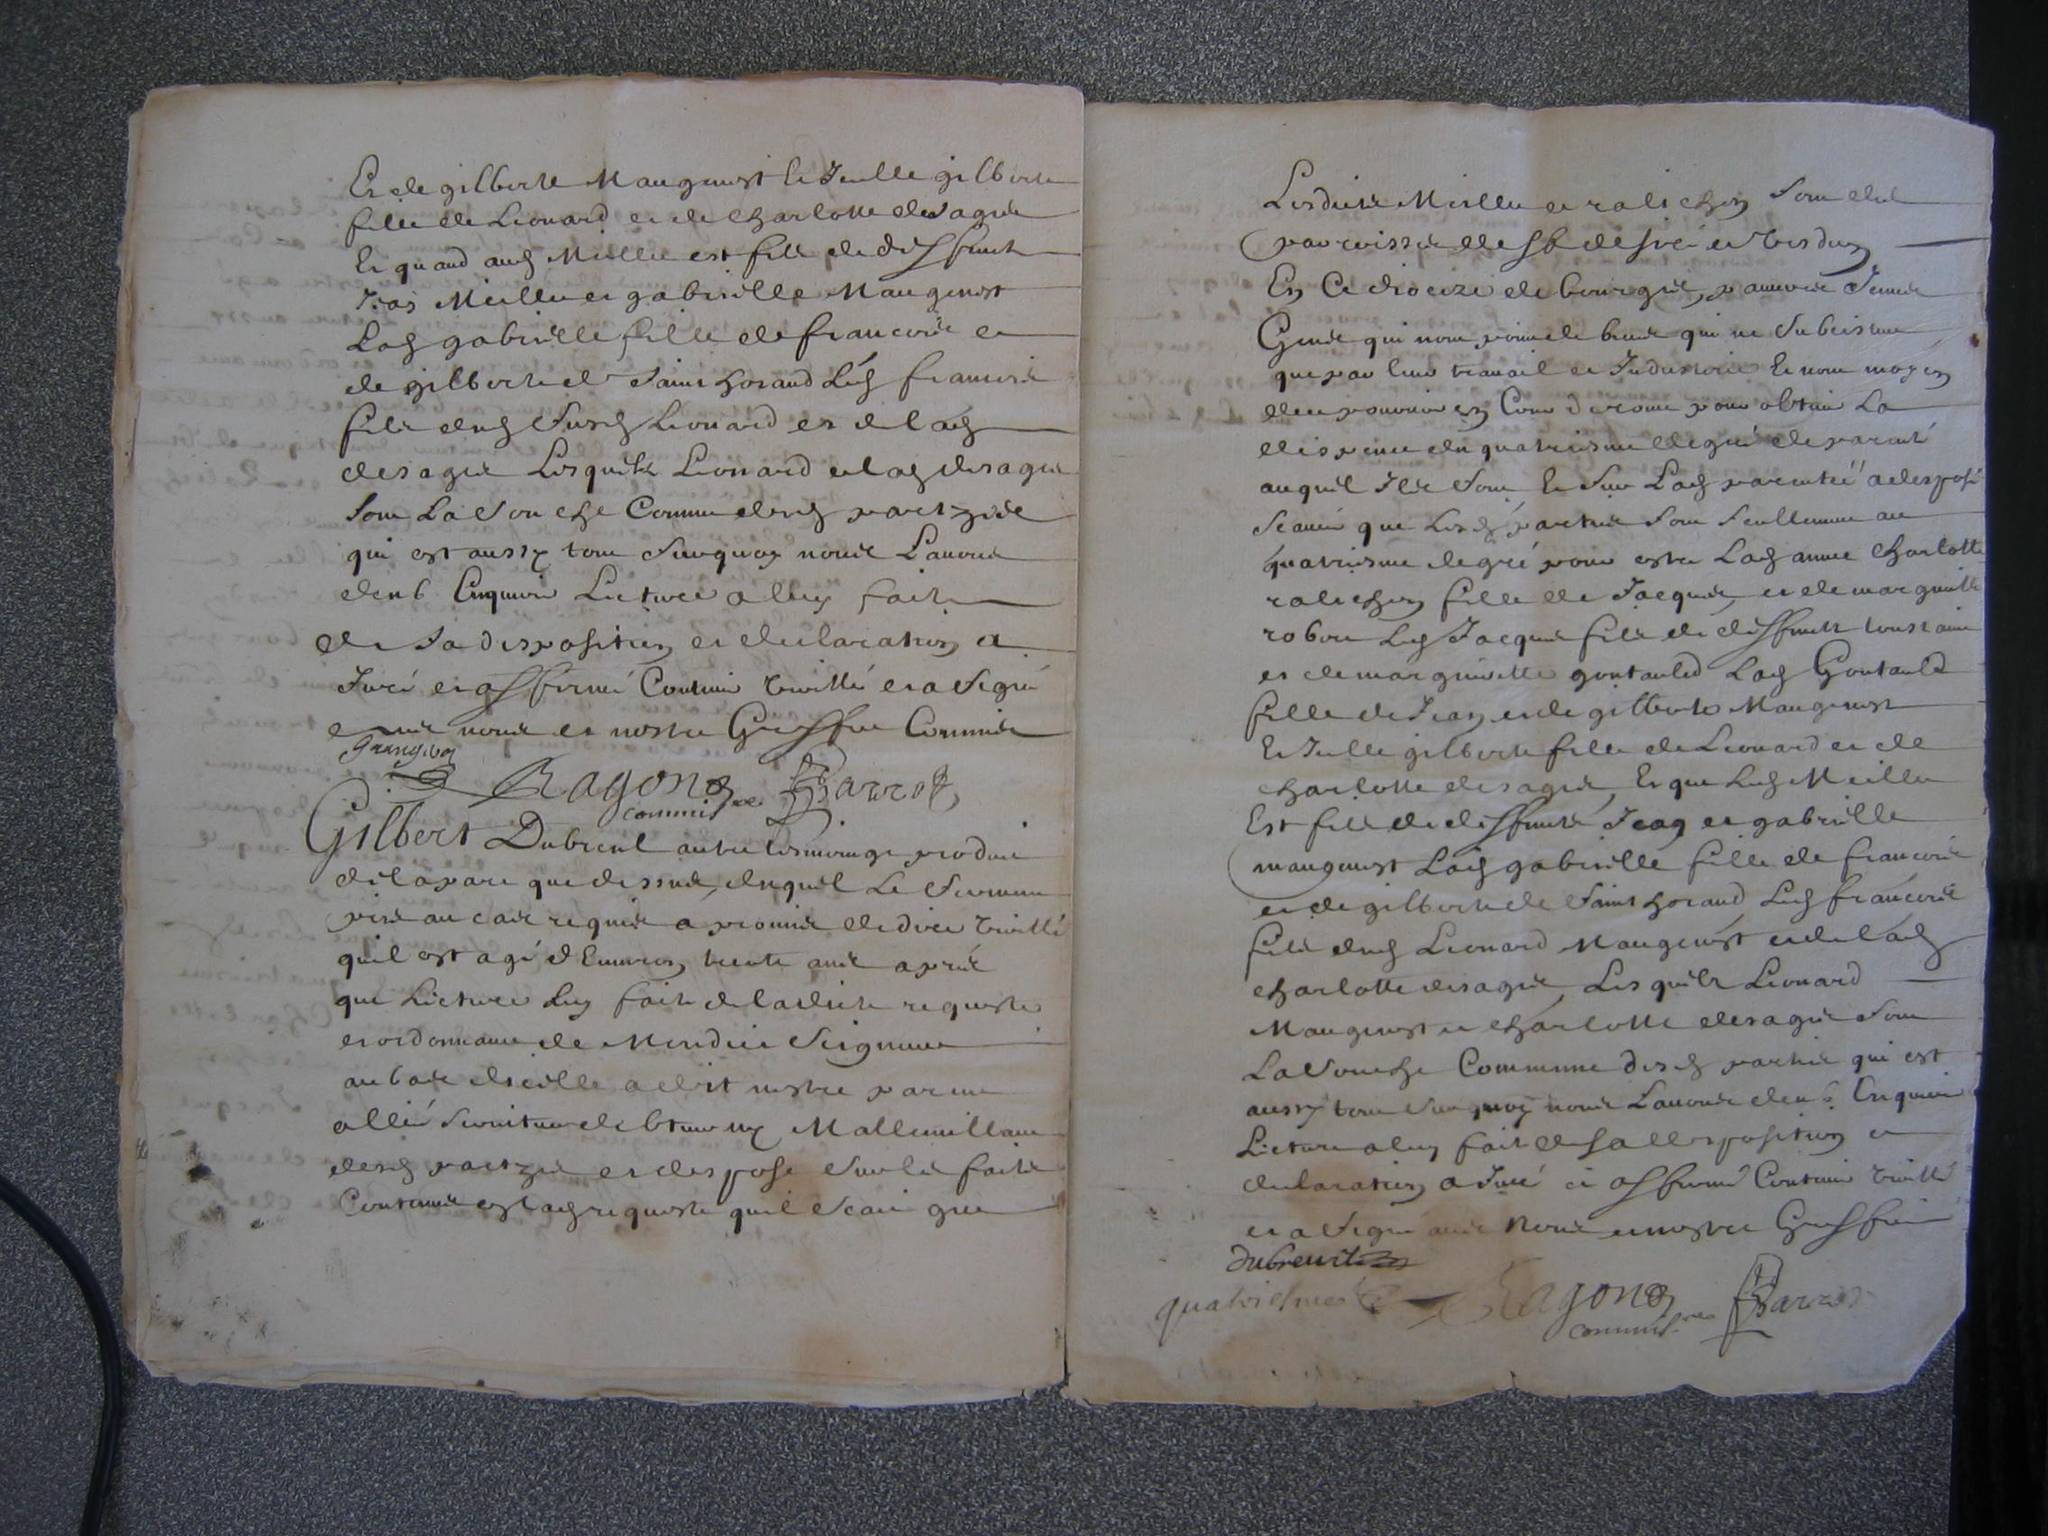 Et de gilberte Maugenest la ditte gilberte
fille de Leonard et de Charlotte desages
Et quand aud Meillet est fils de deffunts
Jean Meillet et gabrielle Maugenest
Lad gabrielle fille de francois et
de gilberte de Sainthorand led francois
fils dud Leonard et de lad
desages Lesquels Leonard et lad desages
sont La souche Commune desd partyes
qui est aussy tout surquoy nous L'avons
Enquis Lecture a luy faite
de sa deposition et declaration a
Juré et affirmé Contenir verité et a signé
avec nous et nostre Greffier Commis
Ragon
commis.re Barrot
Gilbert Dubreul autre tesmoing produit
de la part que dessus, duquel Le serment
pris au cas requis a promis de dire verité
quil est agé d'Environ trente ans apres
que Lecture Luy faite de la dite requeste
et ordonnance de Mondit Seigneur
au bas d'icelle a dit n'estre parent
allié serviteur debteur ny Malveillant
desd partyes et depose sur les faits
Contenus en lad requeste quil scait que
Lesdits Meillet et ralichon sont de la
parroisse de St desiré et Verdun
En Ce dioceze de bourges, pauvres Jeunes
Gens qui n'ont point de biens qui ne subsistent
que par leur travail et Industrie Et n'ont moyen
de se pourvoir en Cour de rome pour obtenir La
dispense du quatriesme degré de parenté
auquel Ils sont Et sur Lad parentée a deposé
scavoir que Lesd parties sont seullement au
quatriesme degré pour estre Lad anne Charlotte
ralichon fille de Jacques et de margueritte
robert Led Jacques fils de deffunts toussaint
et de margueritte gontauld Lad Gontauld
fille de Jean et de gilberte Maugenest
La ditte gilberte fille de Leonard et de
Charlotte desages, Et que Led Meillet
Est fils de deffunts Jean et gabrielle
maugenest Lad gabrielle fille de francois
et de gilberte de Sainthorand Led francois
fils dud Leonard Maugenest et de lad
charlotte desages, Lesquels Leonard
Maugenest et charlotte desages sont
La souche Commune desd parties qui est
aussy tout surquoy nous L'avons Enquis
Lecture a luy faite de sa deposition et
declaration a Juré et affirmé Contenir verité
et a signé avec Nous et nostre Greffier
dubreuil
quatriesme Ragon Barrot
commis.re